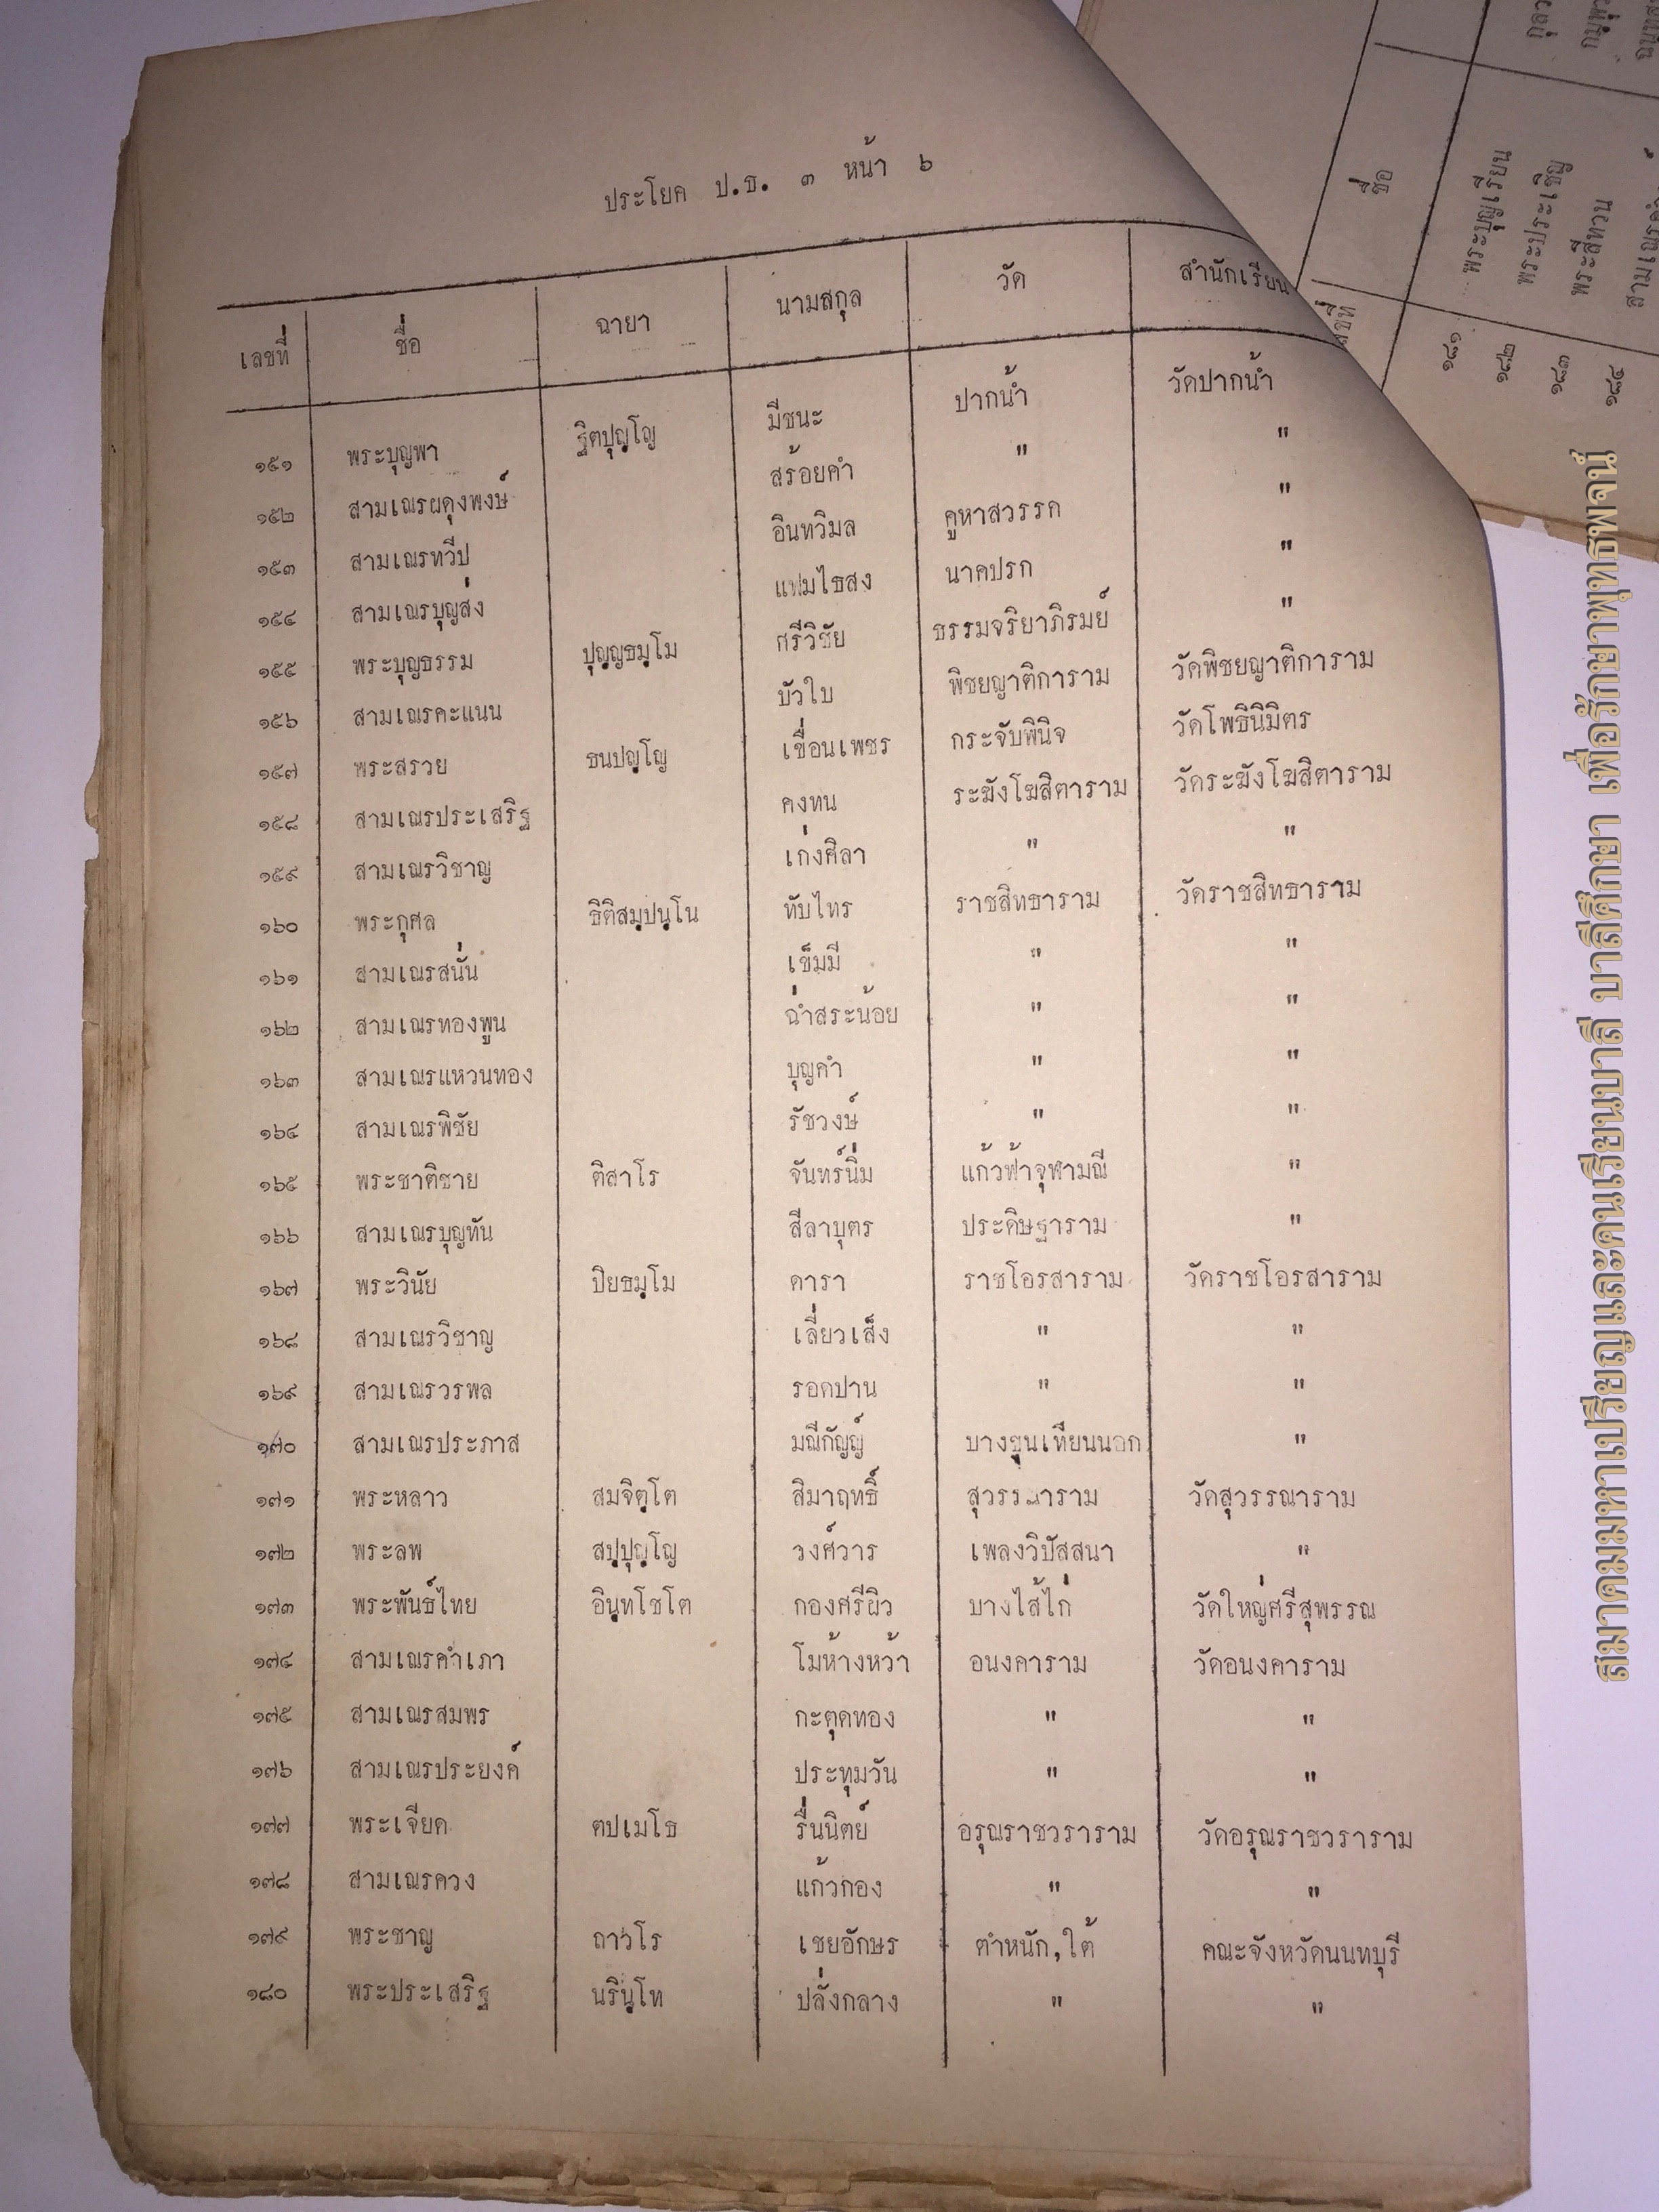 ประโยค ป.ธ. ๓ หน้า ๖
เลขที่ ชื่อ ฉายา นามสกุล วัด สำนักเรียน
๑๕๑ พระบุญพา ฐิตปุญฺโญ มีชนะ ปากน้ำ วัดปากน้ำ
๑๕๒ สามเณรผดุงพงษ์ สร้อยคำ " "
๑๕๓ สามเณรทวีป อินทวิมล คูหาสวรรค "
๑๕๔ สามเณรบุญส่ง แฟมไธสง นาคปรก "
๑๕๕ พระบุญธรรม ปุญฺญธมฺโม ศรีวิชัย ธรรมจริยาภิรมย์ "
๑๕๖ สามเณรคะแนน บัวใบ พิชยญาติการาม วัดพิชยญาติการาม
๑๕๗ พระสรวย ธนปญฺโญ เขื่อนเพชร กระจับพินิจ วัดโพธินิมิตร
๑๕๘ สามเณรประเสริฐ คงทน ระฆังโฆสิตาราม วัดระฆังโฆสิตาราม
๑๕๙ สามเณรวิชาญ เก่งศิลา " "
๑๖๐ พระกุศล ธิติสมฺปนฺโน ทับไทร ราชสิทธาราม วัดราชสิทธาราม
๑๖๑ สามเณรสนั่น เข็มมี " "
๑๖๒ สามเณรทองพูน ฉ่ำสระน้อย " "
๑๖๓ สามเณรแหวนทอง บุญคำ " "
๑๖๔ สามเณรพิชัย รัชวงษ์ " "
๑๖๕ พระชาติชาย ติสาโร จันทร์นิ่ม แก้วฟ้าจุฬามณี "
๑๖๖ สามเณรบุญทัน สีลาบุตร ประดิษฐาราม "
๑๖๗ พระวินัย ปิยธมฺโม ดารา ราชโอรสาราม วัดราชโอรสาราม
๑๖๘ สามเณรวิชาญ เลี่ยวเส็ง " "
๑๖๙ สามเณรวรพล รอดปาน " "
๑๗๐ สามเณรประภาส มณีกัญญ์ บางขุนเทียนนอก "
๑๗๑ พระหลาว สมจิตฺโต สิมาฤทธิ์ สุวรรณาราม วัดสุวรรณาราม
๑๗๒ พระลพ สปฺปุญฺโญ วงศ์วาร เพลงวิปัสสนา "
๑๗๓ พระพันธ์ไทย อินฺทโชโต กองศรีผิว บางไส้ไก่ วัดใหญ่ศรีสุพรรณ
๑๗๔ สามเณรคำเภา โมห้างหว้า อนงคาราม วัดอนงคาราม
๑๗๕ สามเณรสมพร กะตุดทอง " "
๑๗๖ สามเณรประยงค์ ประทุมวัน " "
๑๗๗ พระเจียด ตปเมโธ รื่นนิตย์ อรุณราชวราราม วัดอรุณราชวราราม
๑๗๘ สามเณรดวง แก้วกอง " "
๑๗๙ พระชาญ ถาวโร เชยอักษร ตำหนัก,ใต้ คณะจังหวัดนนทบุรี
๑๘๐ พระประเสริฐ นรินฺโท ปลั่งกลาง " "
ชื่อ
๑๘๑ พระบุญเรียน
๑๘๒ พระประเชิญ
๑๘๓ พระสีทวน
๑๘๔
สมาคมมหาเปรียญและคนเรียนบาลี บาลีศึกษา เพื่อรักษาพุทธพจน์